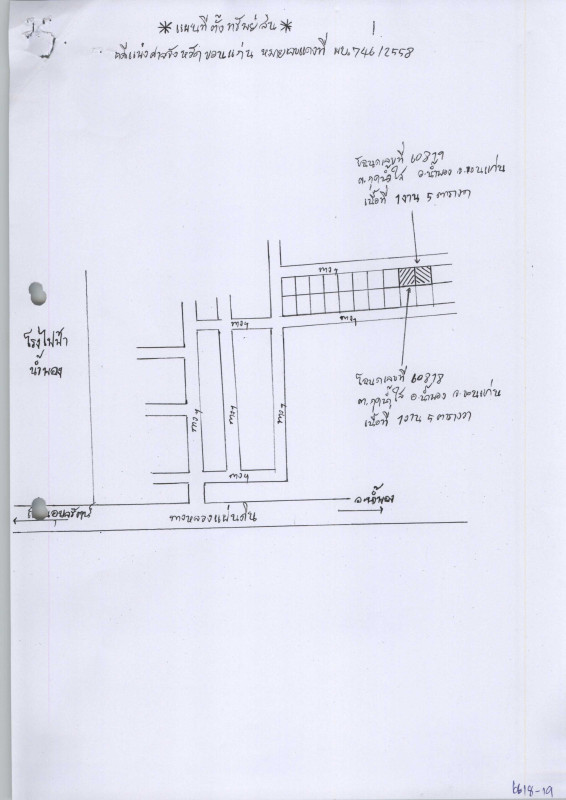 25
*แผนที่ตั้งทรัพย์สิน*
คดีแพ่งศาลจังหวัดขอนแก่น หมายเลขแดงที่ ผบ.746/2558
โฉนดเลขที่ 60379
ต.กุดน้ำใส อ.น้ำพอง จ.ขอนแก่น
เนื้อที่ 1งาน 5 ตารางวา
ทางฯ
ทางฯ
ทางฯ
โรงไฟฟ้า
น้ำพอง
โฉนดเลขที่ 60378
ต.กุดน้ำใส อ.น้ำพอง จ.ขอนแก่น
เนื้อที่ 1งาน 5 ตารางวา
ทางฯ
ทางฯ
ทางฯ
ทางฯ
อ.น้ำพอง
อุบลรัตน์
ทางหลวงแผ่นดิน
6618-19